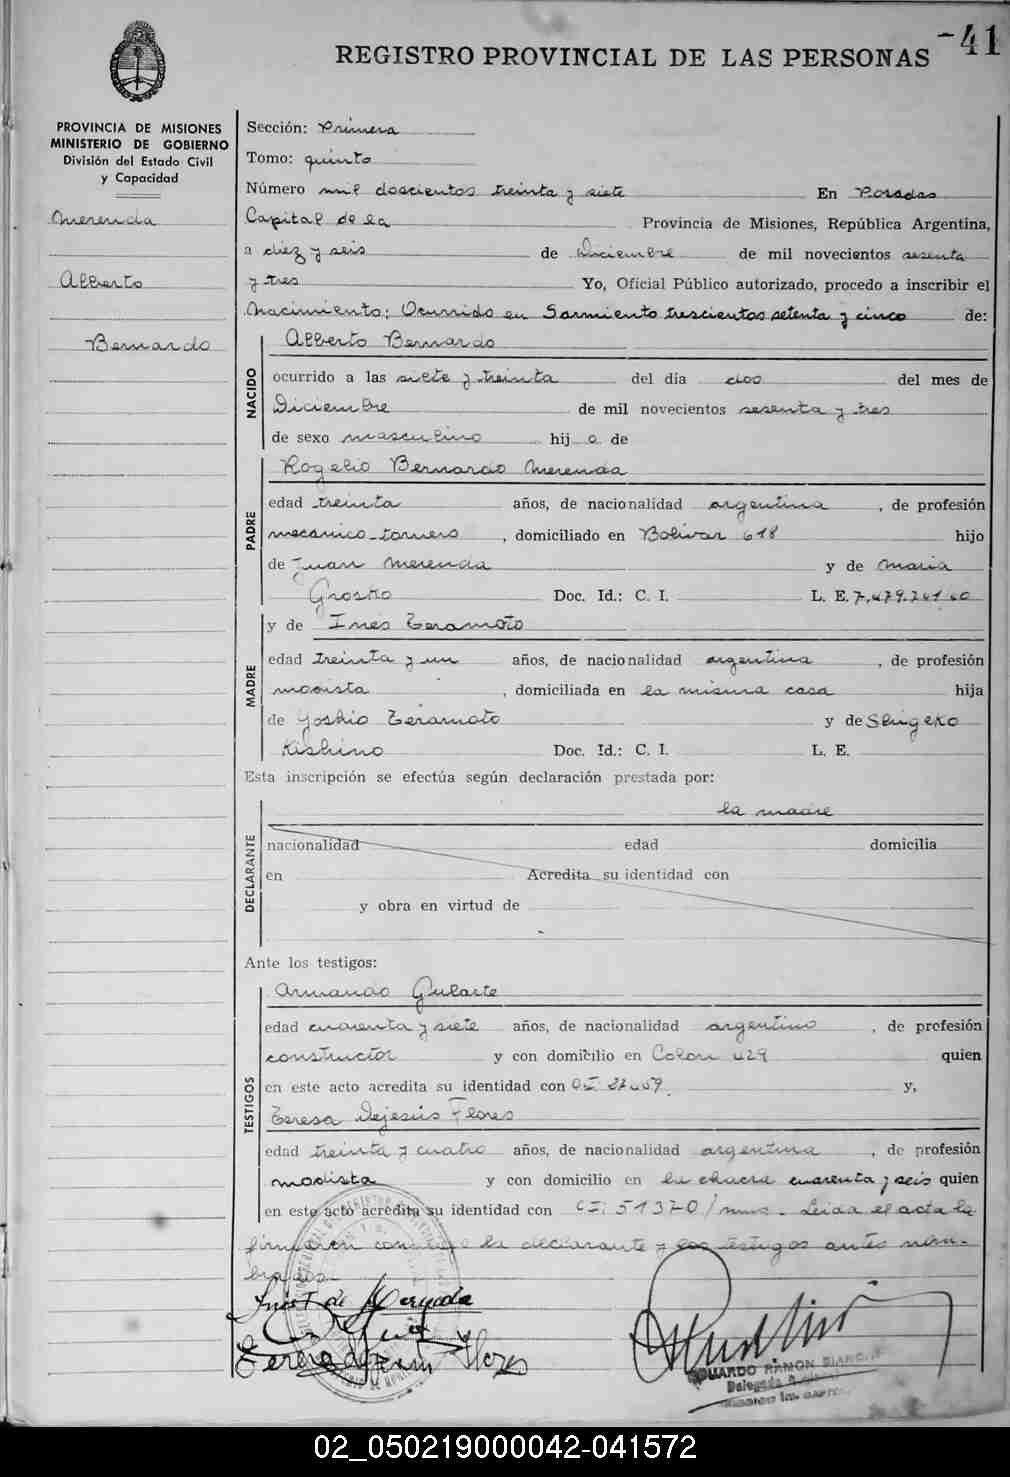 -41
REGISTRO PROVINCIAL DE LAS PERSONAS
PROVINCIA DE MISIONES
MINISTERIO DE GOBIERNO
División del Estado Civil
y Capacidad
Merenda
Alberto
Bernardo
Sección: Primera
Tomo: quinto
Número mil doscientos treinta y siete En Posadas
Capital de la Provincia de Misiones, República Argentina,
a diez y seis de Diciembre de mil novecientos sesenta
y tres Yo, Oficial Público autorizado, procedo a inscribir el
Nacimiento: Ocurrido en Sarmiento trescientos setenta y cinco de:
NACIDO
Alberto Bernardo
ocurrido a las siete y treinta del día dos del mes de
Diciembre de mil novecientos sesenta y tres
de sexo masculino hij o de
PADRE
Rogelio Bernardo Merenda
edad treinta años, de nacionalidad argentina, de profesión
mecánico-tornero, domiciliado en Bolívar 618 hijo
de Juan Merenda y de María
Grosko Doc. Id.: C. I. L. E.
y de Ines Teramoto
MADRE
edad treinta y un años, de nacionalidad argentina, de profesión
modista, domiciliada en la misma casa hija
de Yoshio Teramoto y de Shigeko
Kishino Doc. Id.: C. I. L. E.
Esta inscripción se efectúa según declaración prestada por:
DECLARANTE
la madre
nacionalidad edad domicilia
en Acredita su identidad con
y obra en virtud de
Ante los testigos:
TESTIGOS
Armando Gularte
edad cuarenta y siete años, de nacionalidad argentino, de profesión
constructor y con domicilio en Colon 429 quien
en este acto acredita su identidad con CI. y,
Teresa Dejesús Flores
edad treinta y cuatro años, de nacionalidad argentina, de profesión
modista y con domicilio en la chacra cuarenta y seis quien
en este acto acredita su identidad con CI: 51370/mnes. Leída el acta la
firmaron conmigo la declarante y los testigos antes nom-
brados.-
Inés T de Merenda
Teresa dejesus Flores
EDUARDO RAMON
Delegado
02_050219000042-041572